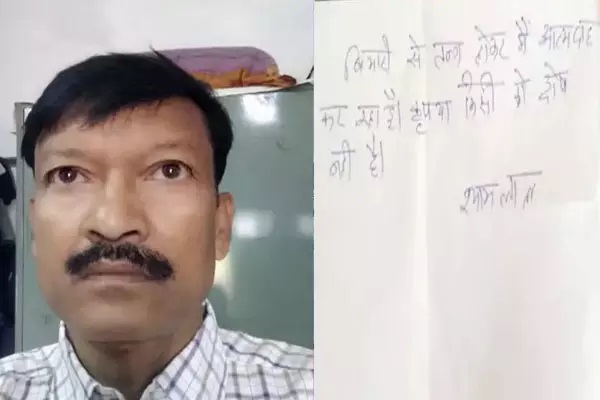 बिमारी से तन्ग होकर मैं आत्मदाह
कर रहा हूँ। कृपया किसी को दोष
नहीं है।
श्यामलाल